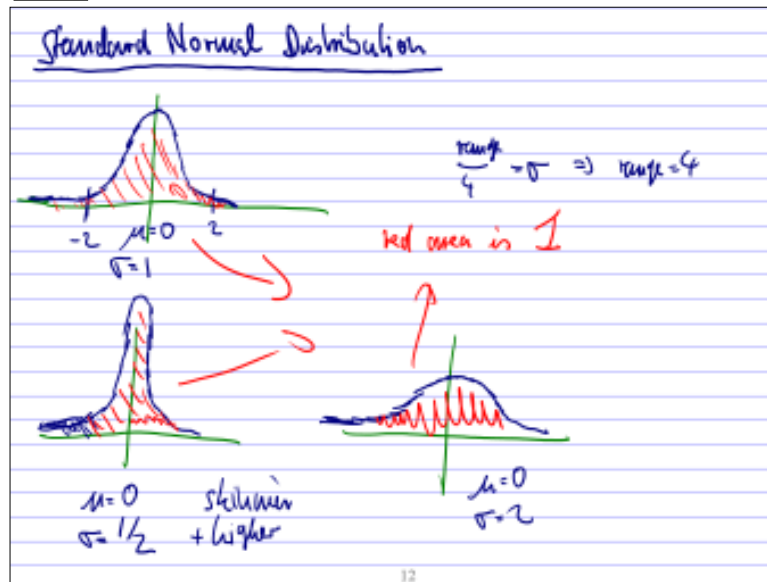 Standard Normal Distribution
range/4 = σ ⇒ range = 4
-2 μ=0 2
σ=1
red area is 1
μ=0
σ=1/2
skinnier
+ higher
μ=0
σ=2
12